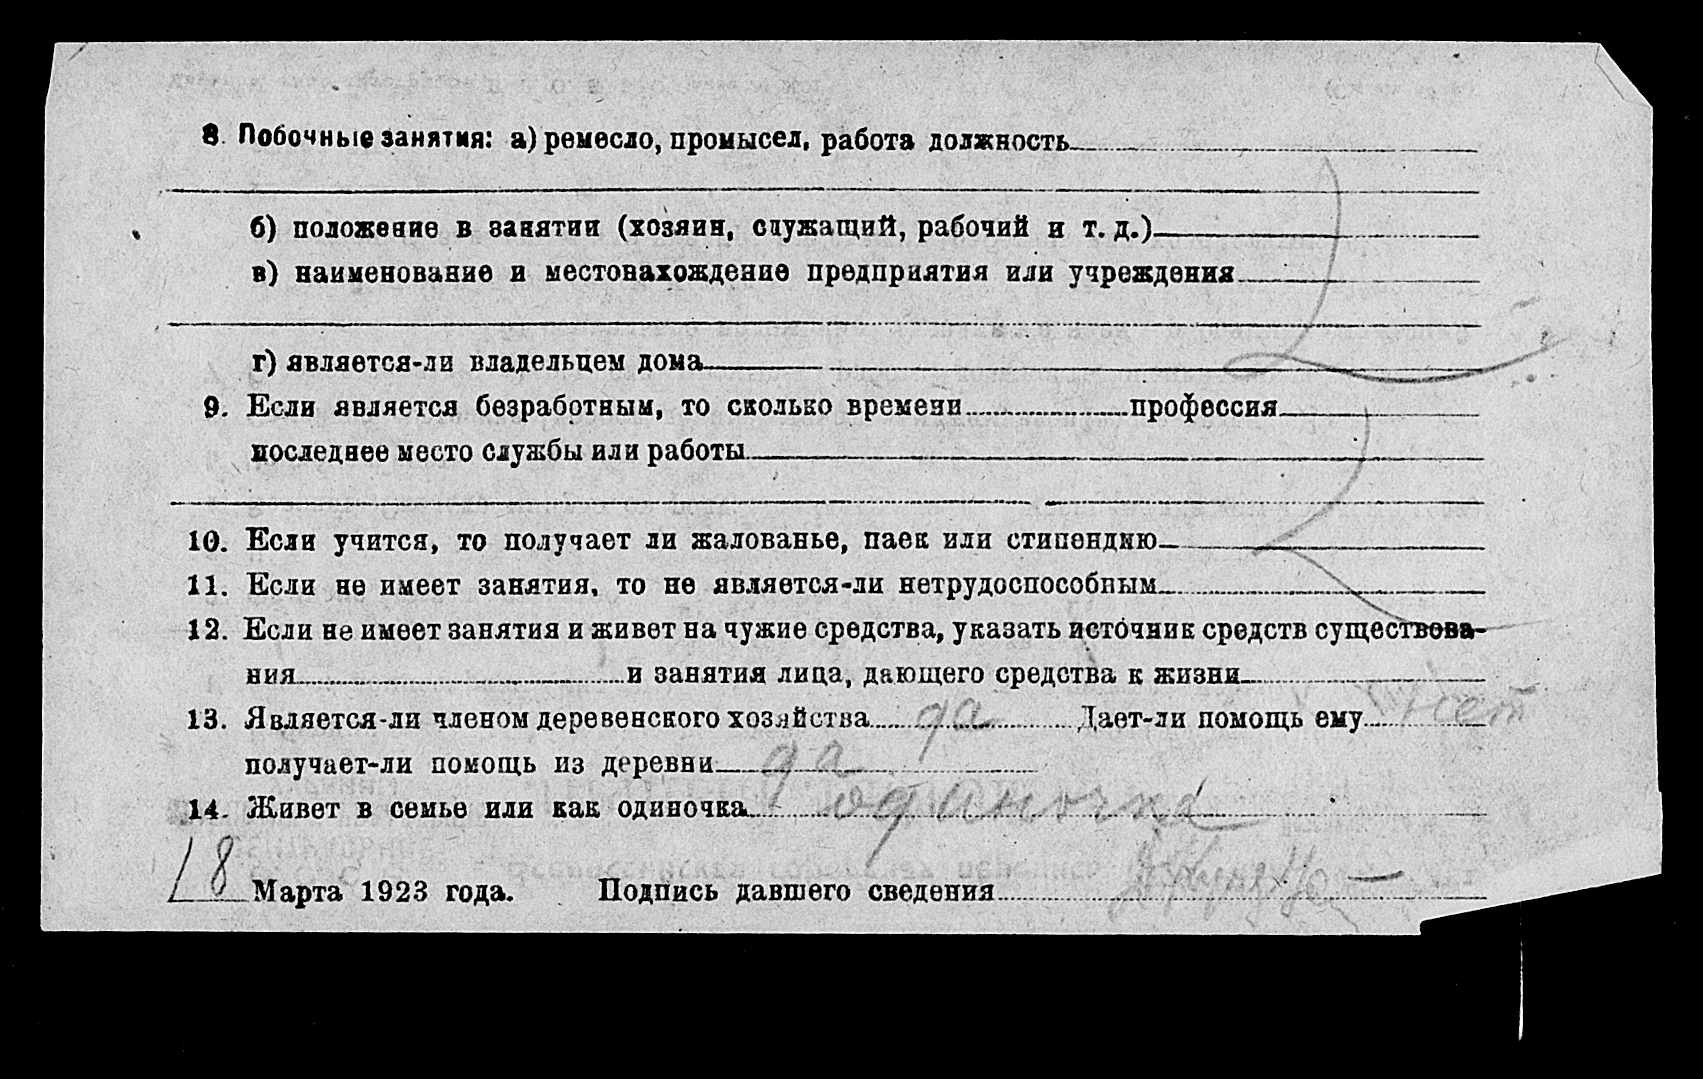 8. Побочные занятия: а) ремесло, промысел, работа должность
б) положение в занятии (хозяин, служащий, рабочий и т. д.)
в) наименование и местонахождение предприятия или учреждения
г) является-ли владельцем дома
9. Если является безработным, то сколько времени профессия
последнее место службы или работы
10. Если учится, то получает ли жалованье, паек или стипендию
11. Если не имеет занятия, то не является-ли нетрудоспособным
12. Если не имеет занятия и живет на чужие средства, указать источник средств существова-
ния и занятия лица, дающего средства к жизни
13. Является-ли членом деревенского хозяйства да Дает-ли помощь ему нет
получает-ли помощь из деревни да
14. Живет в семье или как одиночка одиночка
18 Марта 1923 года. Подпись давшего сведения